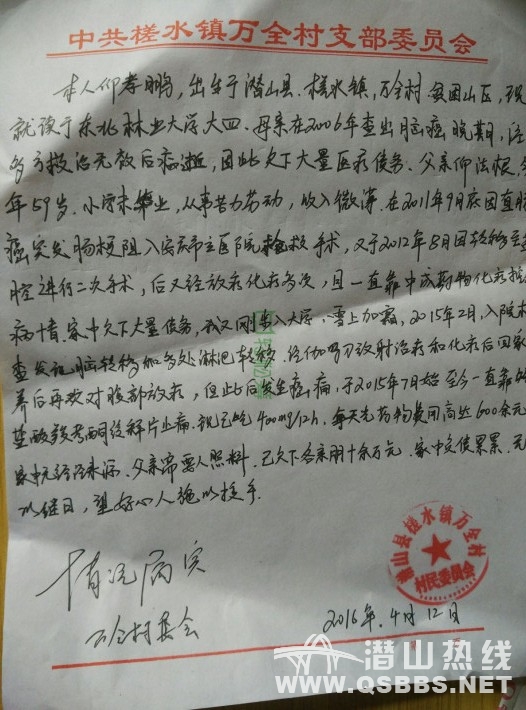 中共槎水镇万全村支部委员会
本人仰孝鹏,出生于潜山县.槎水镇,万全村.贫困山区,现
就读于东北林业大学大四.母亲在2006年查出脑癌晚期,经
多方救治无效后病逝,因此欠下大量医疗债务.父亲仰法根,今
年59岁.小学未毕业,从事苦力劳动,收入微薄.在2011年9月底因直肠
癌突发肠梗阻入安庆市立医院抢救手术,又于2012年8月因转移至
腔进行二次手术,后又经放疗化疗多次,且一直靠中成药物化疗
病情.家中欠下大量债务,我又刚步入大学,雪上加霜,2015年2月,入院
查发现脑转移和多处淋巴转移.经伽吗刀放射治疗和化疗后回家
养后再次对腹部放疗,但此后发生癌痛,于2015年7月始至今一直靠
盐酸羟考酮缓释片止痛.现已吃400mg/12h.每天光药物费用高达600余元
家中无经济来源.父亲需要人照料.已欠下各亲朋十余万元.家中负债累累.无
以继日,望好心人施以援手.
情况属实
万全村委会
2016年.4月12日
潜山县槎水镇万全村
村民委员会
潜山热线
WWW.QSBBS.NET